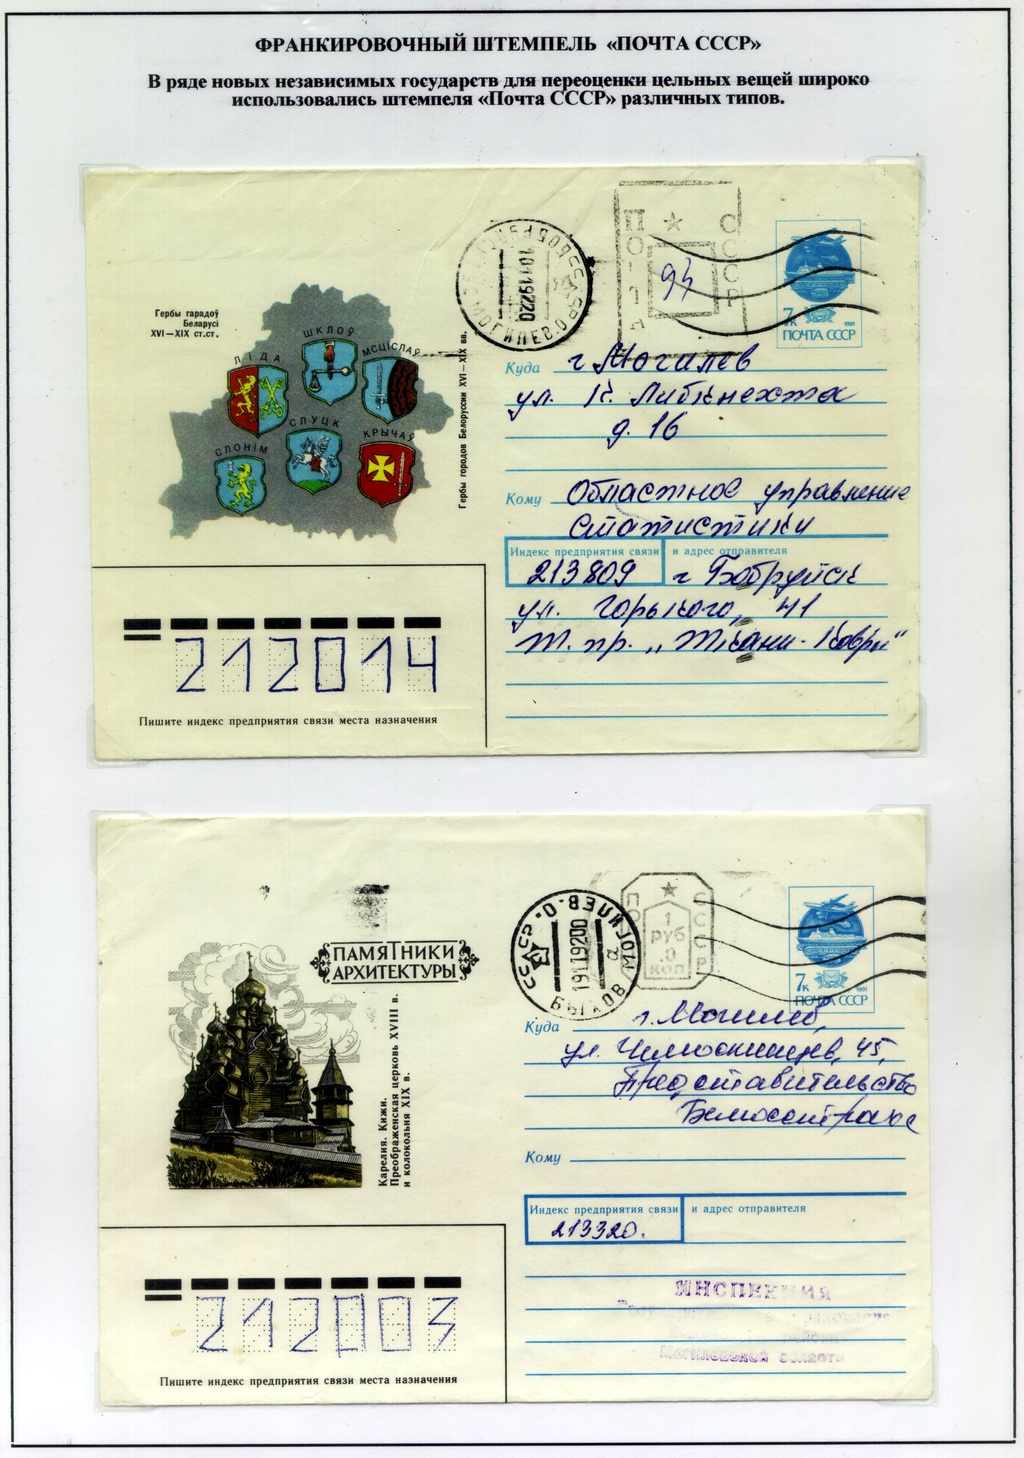 ФРАНКИРОВОЧНЫЙ ШТЕМПЕЛЬ «ПОЧТА СССР»
В ряде новых независимых государств для переоценки цельных вещей широко
использовались штемпеля «Почта СССР» различных типов.
ПОЧТА СССР
93
7к
1991
ПОЧТА СССР
10 11 92 20
Гербы гарадоў
Беларусі
XVI—XIX ст.ст.
ШКЛОЎ
ЛІДА
МСЦІСЛАЎ
СЛУЦК
КРЫЧАЎ
СЛОНІМ
Гербы городов Белоруссии XVI—XIX вв.
Куда г. Могилев
ул. К. Либкнехта
д. 16
Кому Областное управление
статистики
Индекс предприятия связи и адрес отправителя
213809 г Бобруйск
ул. Горького, 41
Т. пр. „Ткани-Ковры"
212014
Пишите индекс предприятия связи места назначения
СССР МОГИЛЕВ.О.
БЫХОВ
19 11 92 00
ПО СССР
1
руб
.0
коп
7к
1991
ПОЧТА СССР
ПАМЯТНИКИ
АРХИТЕКТУРЫ
Карелия. Кижи.
Преображенская церковь XVIII в.
и колокольня XIX в.
Куда г. Могилев,
ул. 45,
Представительство
Кому
Индекс предприятия связи и адрес отправителя
213320.
ИНСПЕКЦИЯ
Могилевской области
212003
Пишите индекс предприятия связи места назначения